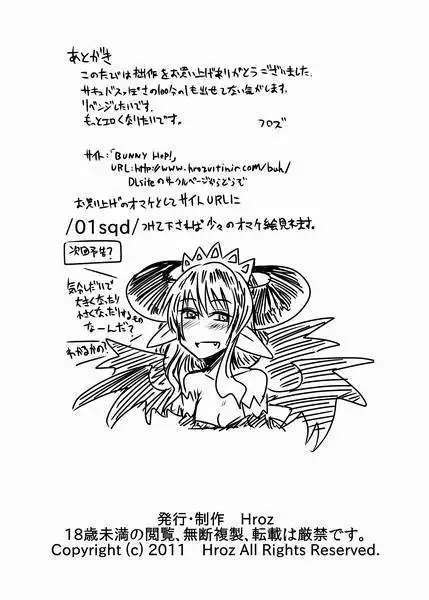 あとがき
このたびは拙作をお買い上げありがとうございました.
サキュバスっぽさの100分の1も出せてない気がします.
リベンジしたいです.
もっとエロくなりたいです。
フロズ
サイト:「BUNNY HOP!」
URL:http://www.hrozvitinir.com/buh/
DLsiteのサークルページからどうぞ
お買い上げのオマケとしてサイトURLに
/01sqd/つけて下されば少々のオマケ絵見れます。
次回予告?
気分しだいで
大きくなったり
小さくなったりするもの
なーんだ?
わかるかの?
発行・制作 Hroz
18歳未満の閲覧、無断複製、転載は厳禁です。
Copyright (c) 2011 Hroz All Rights Reserved.